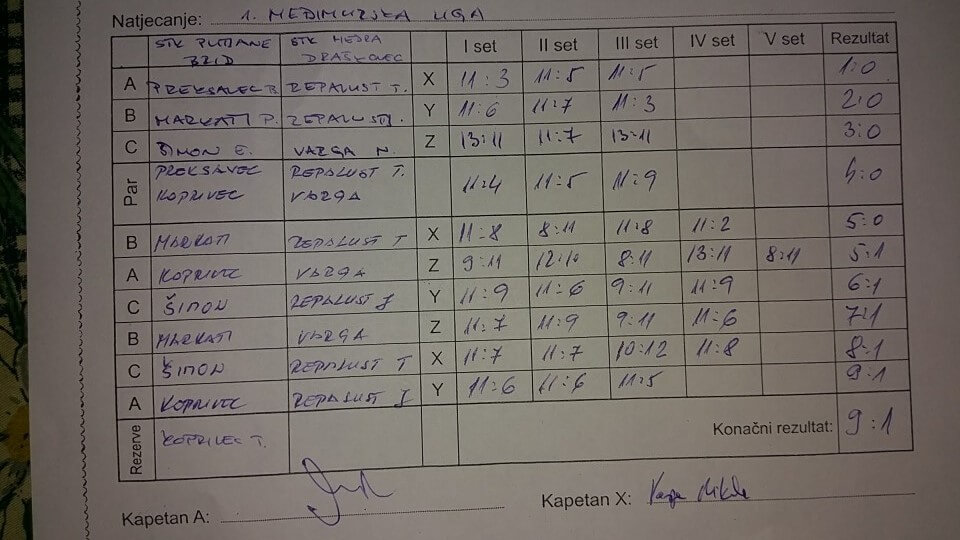 Natjecanje: 1. MEĐIMURSKA LIGA
STK PUTJANE BRID STK MEDRA DRAŠKOVEC I set II set III set IV set V set Rezultat
A PREKSAVEC B. REPALUST T. X 11:3 11:5 11:5 1:0
B MARKATI P. REPALUST J. Y 11:6 11:7 11:3 2:0
C ŠIMON E. VARGA N. Z 13:11 11:7 13:11 3:0
Par PREKSAVEC KOPRIVEC REPALUST T. VARGA 11:4 11:5 11:9 4:0
B MARKATI REPALUST T X 11:8 8:11 11:8 11:2 5:0
A KOPRIVEC VARGA Z 9:11 12:10 8:11 13:11 8:11 5:1
C ŠIMON REPALUST J Y 11:9 11:6 9:11 11:9 6:1
B MARKATI VARGA Z 11:7 11:9 9:11 11:6 7:1
C ŠIMON REPALUST T X 11:7 11:7 10:12 11:8 8:1
A KOPRIVEC REPALUST J Y 11:6 11:6 11:5 9:1
Rezerve KOPRIVEC T. Konačni rezultat: 9:1
Kapetan A: Kapetan X: